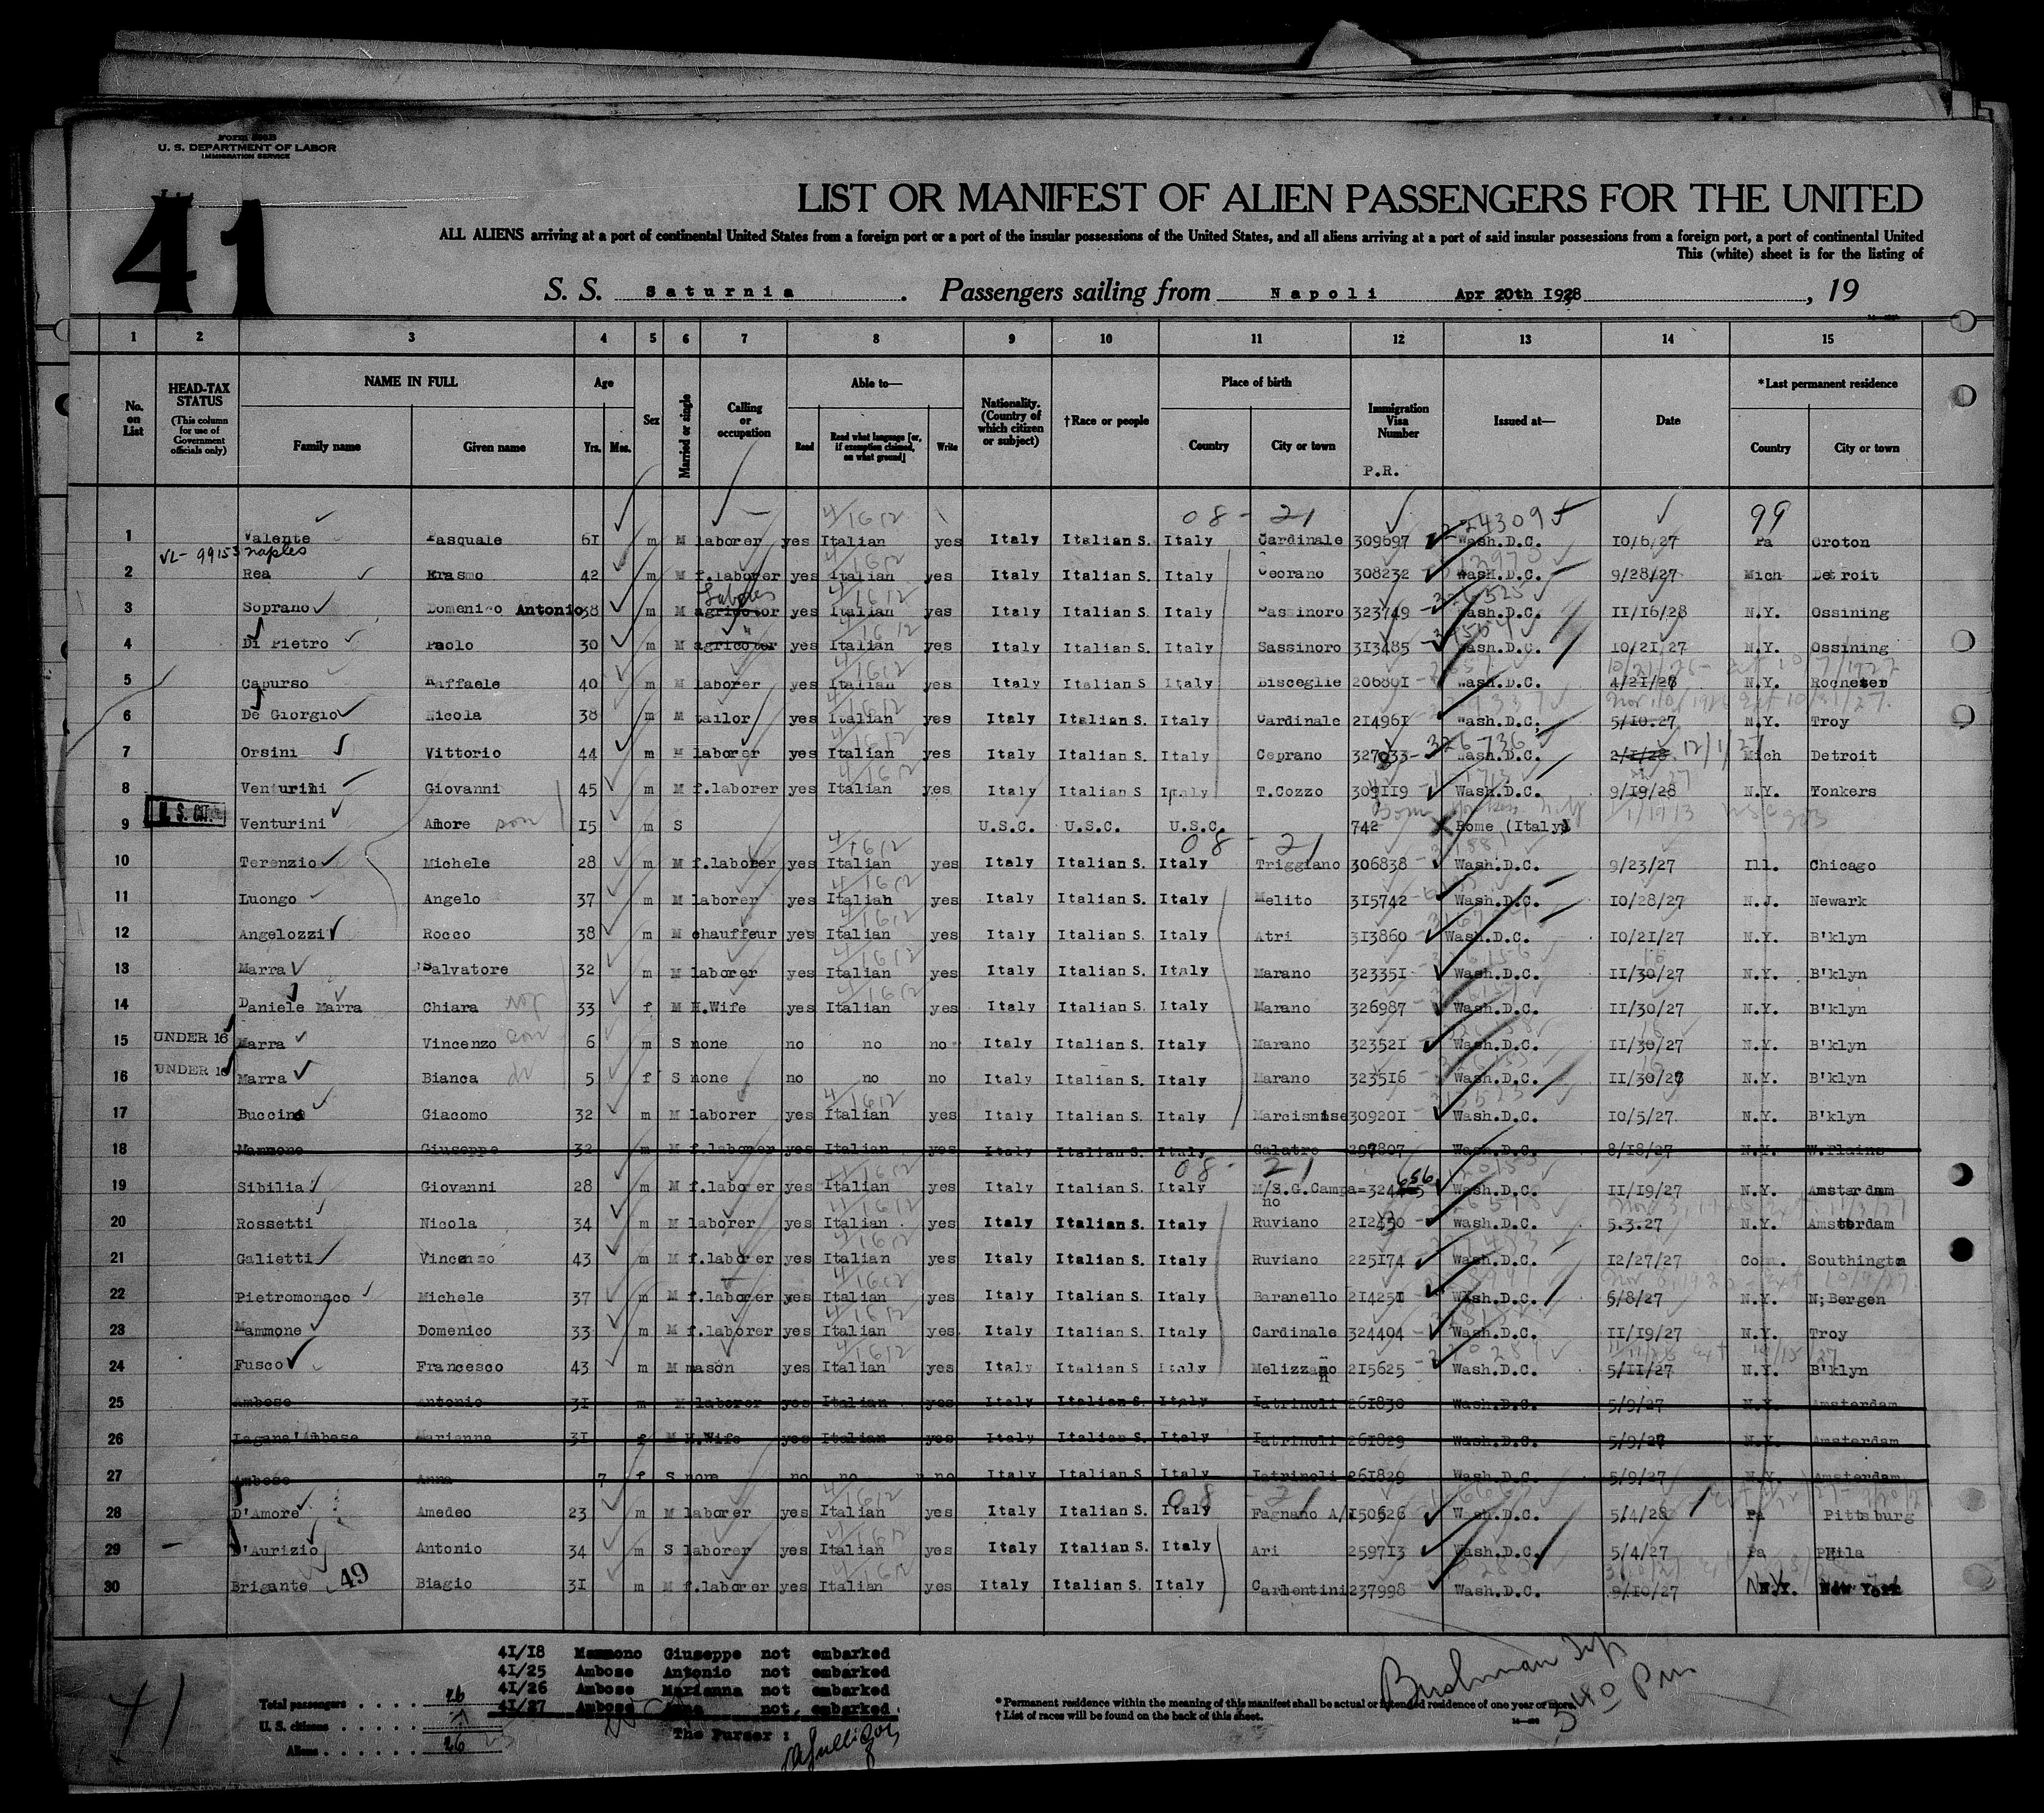 Form 500B
U. S. DEPARTMENT OF LABOR
IMMIGRATION SERVICE
List
41
LIST OR MANIFEST OF ALIEN PASSENGERS FOR THE UNITED
ALL ALIENS arriving at a port of continental United States from a foreign port or a port of the insular possessions of the United States, and all aliens arriving at a port of said insular possessions from a foreign port, a port of continental United
This (white) sheet is for the listing of
S. S. Saturnia. Passengers sailing from Napoli Apr 20th 1928, 19
1 2 3 4 5 6 7 8 9 10 11 12 13 14 15
No. on List HEAD-TAX STATUS (This column for use of Government officials only) NAME IN FULL Family name Given name Age Yrs. Mos. Sex Married or single Calling or occupation Able to— Read Read what language [or, if exemption claimed, on what ground] Write Nationality. (Country of which citizen or subject) †Race or people Place of birth Country City or town Immigration Visa Number P.R. Issued at— Date *Last permanent residence Country City or town
08 - 21 24309 99
1 Valente Pasquale 61 m M laborer yes Italian yes Italy Italian S. Italy Cardinale 309697 Wash.D.C. 10/6/27 Pa Croton
VL- 99153 naples
2 Rea Erasmo 42 m M f.laborer yes Italian yes Italy Italian S. Italy Ceprano 308232 Wash.D.C. 9/28/27 Mich Detroit
Laborer
3 Soprano Domenico Antonio 38 m M agricotor yes Italian yes Italy Italian S. Italy Sassinoro 323749 Wash.D.C. 11/16/28 N.Y. Ossining
4 Di Pietro Paolo 30 m M agricotor yes Italian yes Italy Italian S. Italy Sassinoro 313485 Wash.D.C. 10/21/27 N.Y. Ossining
5 Capurso Raffaele 40 m M laborer yes Italian yes Italy Italian S Italy Bisceglie 206801 Wash.D.C. 4/21/28 N.Y. Rochester
6 De Giorgio Nicola 38 m M tailor yes Italian yes Italy Italian S. Italy Cardinale 214961 Wash.D.C. 5/10.27 N.Y. Troy
7 Orsini Vittorio 44 m M laborer yes Italian yes Italy Italian S. Italy Ceprano 327933 Wash.D.C. 2/1/28 12/1/27 Mich Detroit
8 Venturini Giovanni 45 m M f.laborer yes Italian yes Italy Italian S Italy T.Cozzo 309119 Wash.D.C. 9/19/28 N.Y. Yonkers
U. S. CIT.
9 Venturini Amore son 15 m S U.S.C. U.S.C. U.S.C. 742 Rome (Italy)
08 - 21
10 Terenzio Michele 28 m M f.laborer yes Italian yes Italy Italian S. Italy Triggiano 306838 Wash.D.C. 9/23/27 Ill. Chicago
11 Luongo Angelo 37 m M laborer yes Italian yes Italy Italian S. Italy Melito 315742 Wash.D.C. 10/28/27 N.J. Newark
12 Angelozzi Rocco 38 m M chauffeur yes Italian yes Italy Italian S. Italy Atri 313860 Wash.D.C. 10/21/27 N.Y. B'klyn
13 Marra Salvatore 32 m M laborer yes Italian yes Italy Italian S. Italy Marano 323351 Wash.D.C. 11/30/27 N.Y. B'klyn
14 Daniele Marra Chiara 33 f M H.Wife yes Italian yes Italy Italian S. Italy Marano 326987 Wash.D.C. 11/30/27 N.Y. B'klyn
15 UNDER 16 Marra Vincenzo son 6 m S none no no no Italy Italian S. Italy Marano 323521 Wash.D.C. 11/30/27 N.Y. B'klyn
16 UNDER 16 Marra Bianca 5 f S none no no no Italy Italian S. Italy Marano 323516 Wash.D.C. 11/30/28 N.Y. B'klyn
17 Buccino Giacomo 32 m M laborer yes Italian yes Italy Italian S. Italy Marcianise 309201 Wash.D.C. 10/5/27. N.Y. B'klyn
18 Mammone Giuseppe 32 m M f.laborer yes Italian yes Italy Italian S. Italy Galatro 297807 Wash.D.C. 8/18/27 N.Y. W.Plains
08 - 21
19 Sibilia Giovanni 28 m M f.laborer yes Italian yes Italy Italian S. Italy M/S.G.Campa=no 324656 Wash.D.C. 11/19/27 N.Y. Amsterdam
20 Rossetti Nicola 34 m M laborer yes Italian yes Italy Italian S. Italy Ruviano 212450 Wash.D.C. 5.3.27 N.Y. Amsterdam
21 Galietti Vincenzo 43 m M f.laborer yes Italian yes Italy Italian S. Italy Ruviano 225174 Wash.D.C. 12/27/27 Conn. Southington
22 Pietromonaco Michele 37 m M f.laborer yes Italian yes Italy Italian S. Italy Baranello 214251 Wash.D.C. 5/8/27 N.Y. N;Bergen
23 Mammone Domenico 33 m M f.laborer yes Italian yes Italy Italian S. Italy Cardinale 324404 Wash.D.C. 11/19/27 N.Y. Troy
24 Fusco Francesco 43 m M mason yes Italian yes Italy Italian S Italy Melizzano 215625 Wash.D.C. 5/11/27 N.Y. B'klyn
25 Ambose Antonio 31 m M laborer yes Italian yes Italy Italian S. Italy Iatrinoli 261830 Wash.D.C. 5/9/27 N.Y. Amsterdam
26 Lagana'Ambose Marianna 31 f M H.Wife yes Italian yes Italy Italian S. Italy Iatrinoli 261829 Wash.D.C. 5/9/28 N.Y. Amsterdam
27 Ambose Anna 7 f S none no no no Italy Italian S Italy Iatrinoli 261829 Wash.D.C. 5/9/27 N.Y. Amsterdam
08 - 21
28 D'Amore Amedeo 23 m M laborer yes Italian yes Italy Italian S. Italy Fagnano A/ 150626 Wash.D.C. 5/4/28 Pa Pittsburg
29 D'Aurizio Antonio 34 m S laborer yes Italian yes Italy Italian S. Italy Ari 259713 Wash.D.C. 5/4/27 Pa Phila
30 Brigante 49 Biagio 31 m M f.laborer yes Italian yes Italy Italian S. Italy Carlentini 237998 Wash.D.C. 9/10/27 N.Y. New York
41/18 Mammono Giuseppe not embarked
41/25 Ambose Antonio not embarked
41/26 Ambose Marianna not embarked
41/27 Ambose Anna not embarked
The Purser :
41
Total passengers . . . . 26
U. S. citizens . . . . .
Aliens . . . . . . 26
*Permanent residence within the meaning of this manifest shall be actual or intended residence of one year or more.
† List of races will be found on the back of this sheet.
Bushman
540 Pm